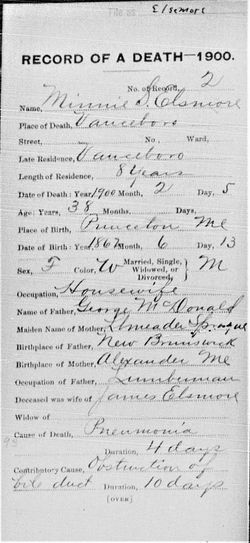 Elsmore
RECORD OF A DEATH—1900.
No. of Record, 2
Name, Minnie S. Elsmore
Place of Death, Vanceboro
Street, No., Ward,
Late Residence, Vanceboro
Length of Residence, 8 Years
Date of Death: Year, 1900 Month, 2 Day, 5
Age: Years, 38 Months, Days,
Place of Birth, Princeton Me
Date of Birth: Year, 1861 Month, 6 Day, 13
Sex, F Color, W Married, Single, Widowed, or Divorced, M
Occupation, Housewife
Name of Father, George McDonald
Maiden Name of Mother, Sprague
Birthplace of Father, New Brunswick
Birthplace of Mother, Alexander Me
Occupation of Father, Lumberman
Deceased was wife of James Elsmore
Widow of
Cause of Death, Pneumonia
Duration, 4 days
Contributory Cause, Obstruction of
bile duct Duration, 10 days
(OVER)